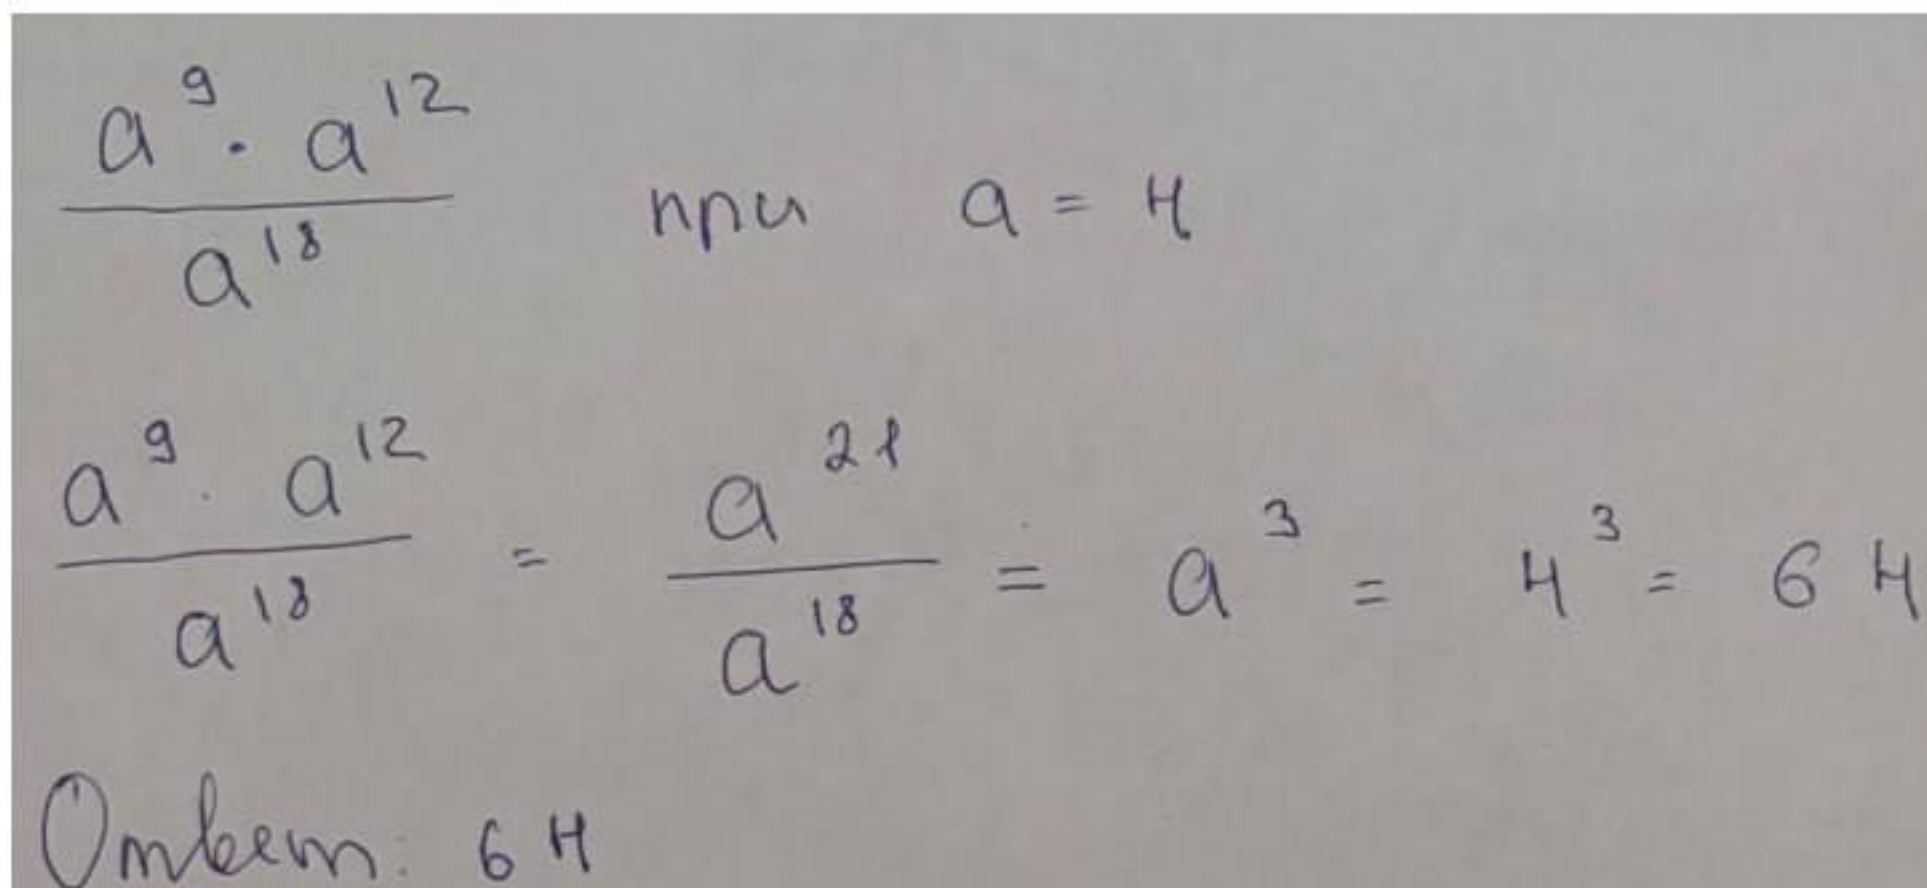 a⁹ · a¹² / a¹⁸ при a = 4
a⁹ · a¹² / a¹⁸ = a²¹ / a¹⁸ = a³ = 4³ = 64
Ответ: 64